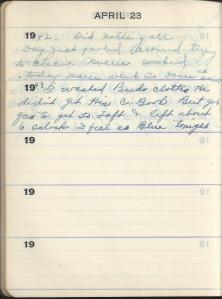 APRIL 23
1942. Did nothing all
Day just fooled around, tried
to clean. Marie worked
today Marie went to Dance at
1943 I washed Buds clothes He
didn't get His C. Book But got
gas to get to Taft & left about
6 oclock I feel so Blue tonight
19
19
19